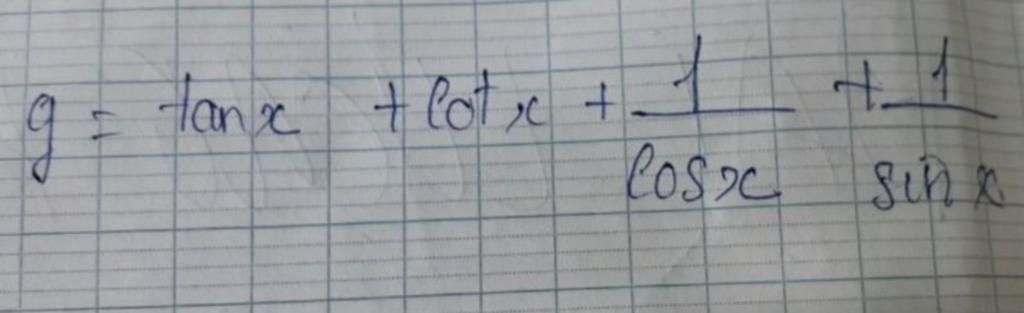 y = tanx + cotx + \frac{1}{cosx} + \frac{1}{sinx}